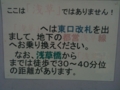 ここは ではありません!
へは東口改札を出
まして、地下の
へお乗り換えください。
なお、浅草橋から
までは徒歩で30〜40分位
の距離があります。